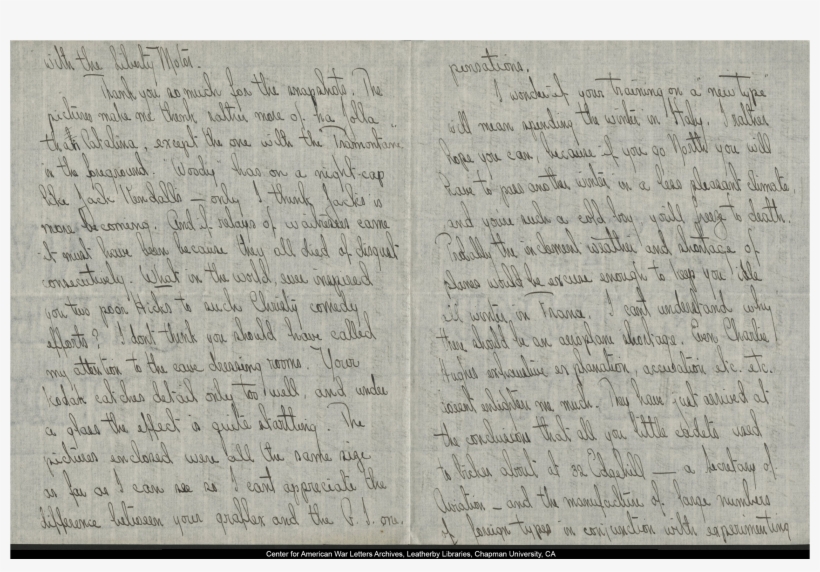 with the Liberty Motor.
Thank you so much for the snapshots. The
pictures make me think rather more of La Jolla
than Catalina, except the one with the Tramontane
in the foreground. "Woody" has on a night-cap
like Jack Kendall's — only I think Jack's is
more becoming. And if relays of waitresses came
it must have been because they all died of disgust
consecutively. What in the world, ever inspired
you two poor Hicks to such Christy comedy
efforts? I don't think you should have called
my attention to the cave dressing rooms. Your
Kodak catches detail only too well, and under
a glass the effect is quite startling. The
pictures enclosed were all the same size
as far as I can see so I can't appreciate the
difference between your graflex and the P. I. one.
pensations.
I wonder if your training on a "new type"
will mean spending the winter in Italy. I rather
hope you can, because if you go North you will
have to pass another winter in a less pleasant climate,
and you're such a cold boy you'll freeze to death.
Probably the inclement weather and shortage of
planes would be excuse enough to keep you idle
all winter, in France. I can't understand why
there should be an aeroplane shortage. Even Charlie
Hughes exhaustive explanation, accusation etc. etc.
doesn't enlighten me much. They have just arrived at
the conclusions that all you little cadets used
to bicker about at 32 Edgehill — a Secretary of
Aviation — and the manufacture of large numbers
of foreign types in conjunction with experimenting
Center for American War Letters Archives, Leatherby Libraries, Chapman University, CA